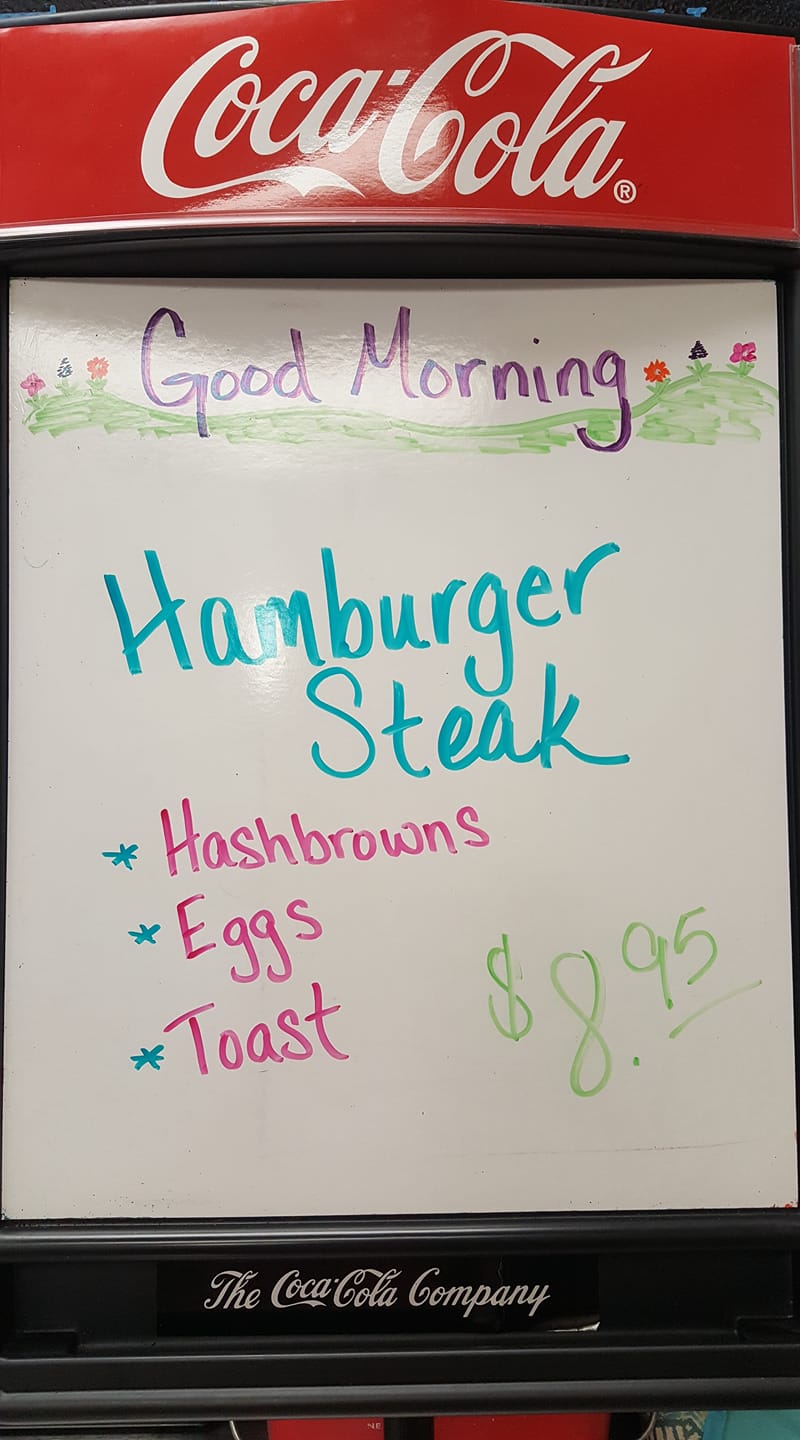 Coca-Cola®
Good Morning
Hamburger
Steak
* Hashbrowns
* Eggs
* Toast
$8.95
The Coca-Cola Company
NE